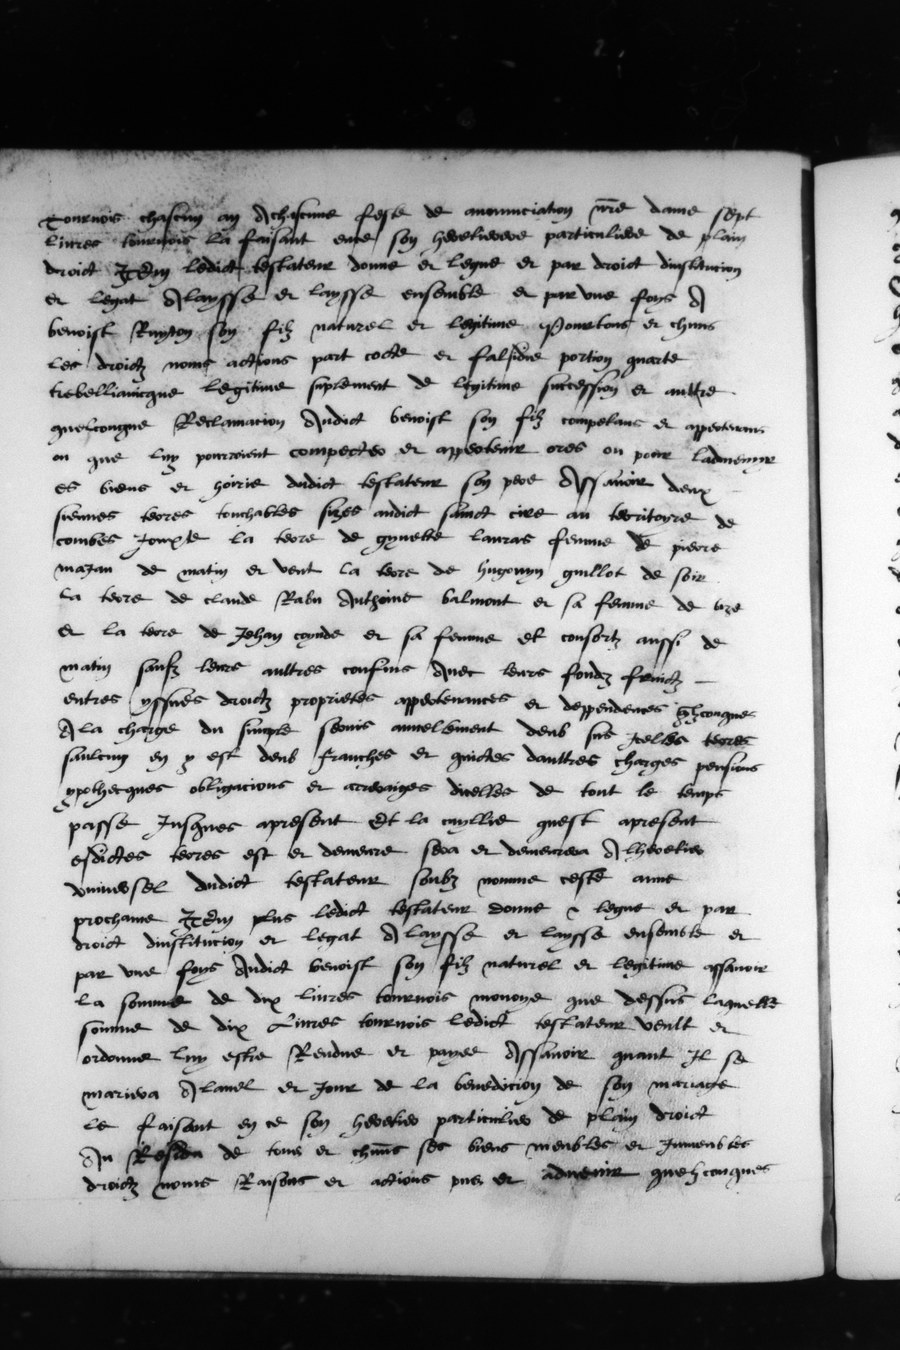 tournois chascun an A chascune feste de anunnciation nre dame sept
livres tournois la faisant en ce son heretierere particuliere de plain
droict Item ledict testateur donne et legue et par droict dinstitucion
et legat A laysse et laysse ensemble et par une foys A
benoist son filz naturel et legitime Pour tous et chuns
les droictz noms actions part cocte et falsidie portion quarte
trebellianicque legitime suplement de legitime succession et aultre
quelconque Reclamacion Audict benoist son filz competans et appertenans
ou que luy pourroient compecter et appertenir ores ou pour ladvenyr
es biens et hoirie dudict testateur son pere Assavoir deux
siennes terres touchables sizes audict sainct cire au territoyre de
combes Jouxte la terre de gynette lauras femme de pierre
mazan de matin et vent la terre de hugonyn guillot de soir
la terre de claude Rabu Anthoine valmont et sa femme de bize
et la terre de Jehan coynde et sa femme et consortz aussi de
matin saufz leurs aultres confins Avec leurs fondz fruictz
entrees yssues droictz proprietes appertenances et deppendences qlzconques
A la charge du simple servis annellement deub sus icelles terres
saulcun en y est deub franches et quictes daultres charges pensions
ypothecques obligacions et arreraiges dicelles de tout le temps
passe Jusques apresent Et la cuyllie quest apresent
esdictes terres est et demeure sera et demeurera A lheretier
universel dudict testateur soubz nomme ceste annee
prochaine Item plus ledict testateur donne & legue et par
droict dinstitucion et legat A laysse et laysse ensemble et
par une foys Audict benoist son filz naturel et legitime assavoir
la somme de dix livres tournois monoye que dessus laquelle
somme de dix Livres tournois ledict testateur veult et
ordonne luy estre Rendue et payee Assavoir quant Il se
mariera A lanel et Jour de la benedicion de son mariage
le faisant en ce son heretier particulier de plain droict
Au Residu de tous et chuns ses biens meubles et Immeubles
droictz noms Raisons et actions pns et advenir quelzconques